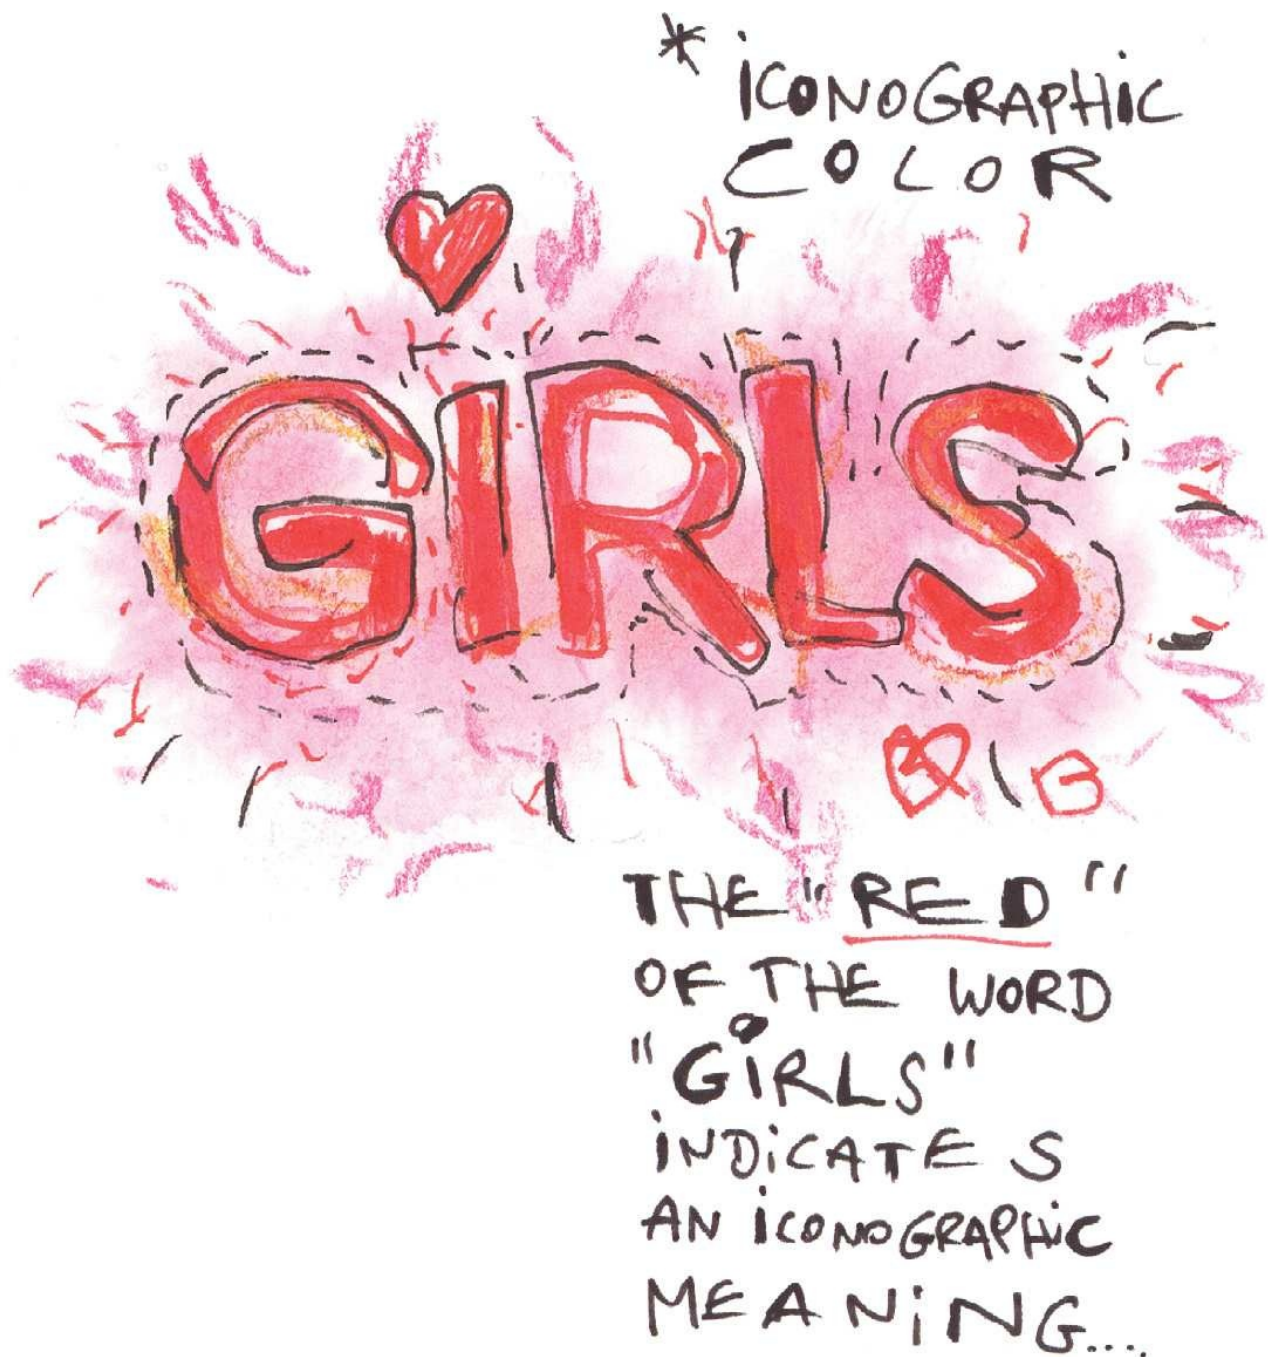 * iCONOGRAPHiC
COLOR
GiRLS
THE "RED"
OF THE WORD
"GiRLS"
iNDiCATES
AN iCONOGRAPHiC
MEANiNG....